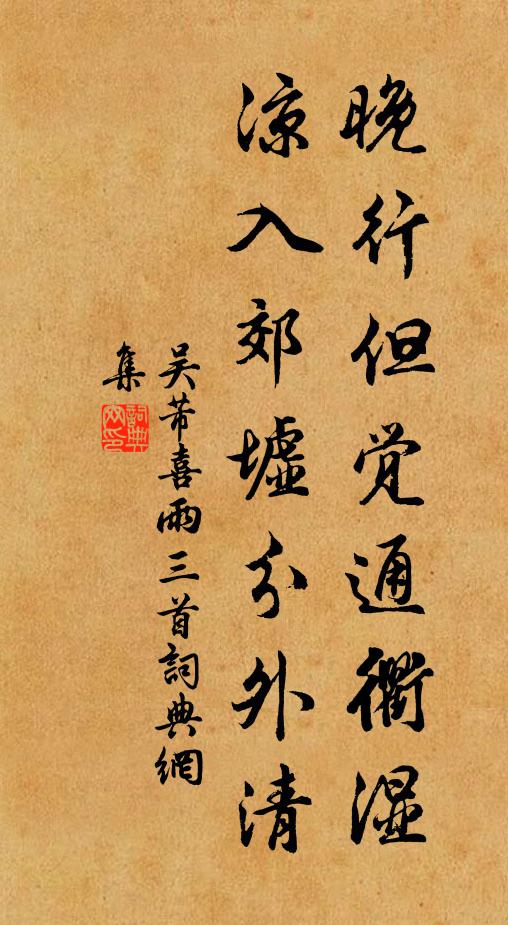 晚行但觉通衢湿
凉入郊墟分外清
吴芾喜雨三首詞典網
集
詞典
网印